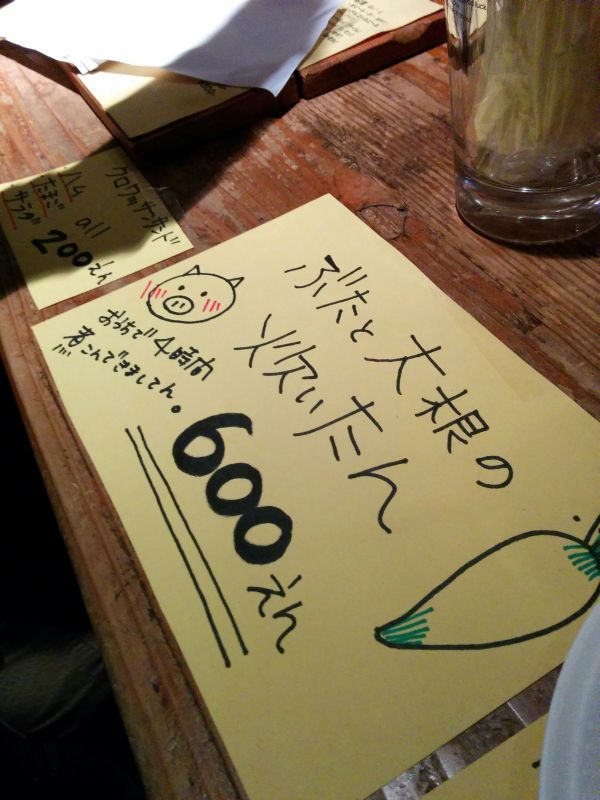 ぶたと大根の
炊いたん
おうちで4時間
煮こんできましてん。
600えん
クロワッサンサンド
all
200えん